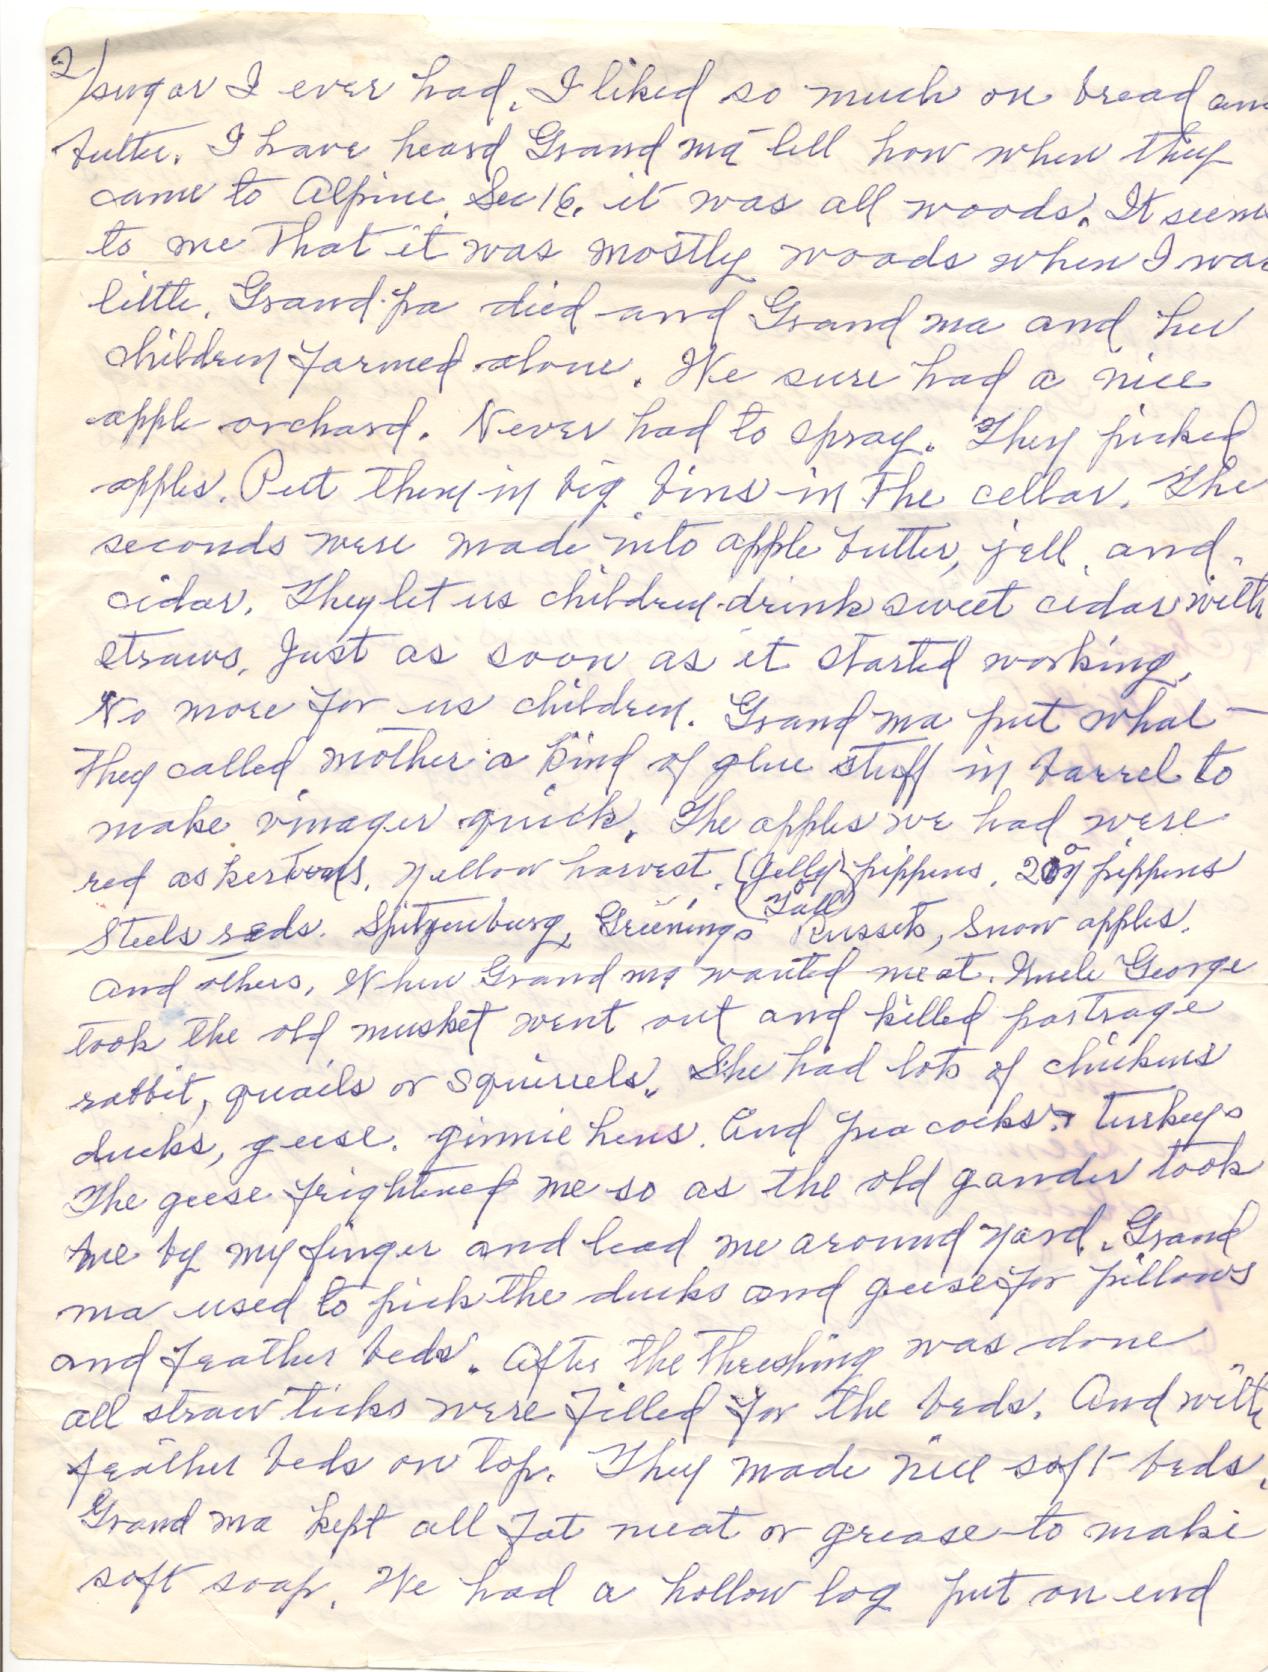 2) sugar I ever had, I liked so much on bread an
butter. I have heard Grand ma tell how when they
came to Alpine, Sec 16, it was all woods. It seem
to me that it was mostly woods when I was
little. Grand-pa died and Grand ma and her
children farmed alone. We sure had a nice
apple orchard. Never had to spray. They picked
apples. Put them in big bins in the cellar. The
seconds were made into apple butter, jell, and
cidar. They let us children drink sweet cidar with
straws. Just as soon as it started working,
No more for us children. Grand ma put what
they called mother a kind of glue stuff in barrel to
make vinager quick. The apples we had were
red as, Yellow harvest. (Gelly) pippens. 20 oy pippens
Steels reds. Spitzenburg, Greenings (Tall) Russets, Snow apples.
and others. When Grand ma wanted meat. Uncle George
took the old musket went out and killed partrage
rabbit, quails or squirrels. She had lots of chickens
ducks, geese. ginnie hens. And pea cocks & turkeys
The geese frightened me so as the old gander took
me by my finger and lead me around yard. Grand
ma used to pick the ducks and geese for pillows
and feather beds. After the threshing was done
all straw ticks were filled for the beds. And with
feather beds on top. They made nice soft beds.
Grand ma kept all fat meat or grease to make
soft soap. We had a hollow log put on end